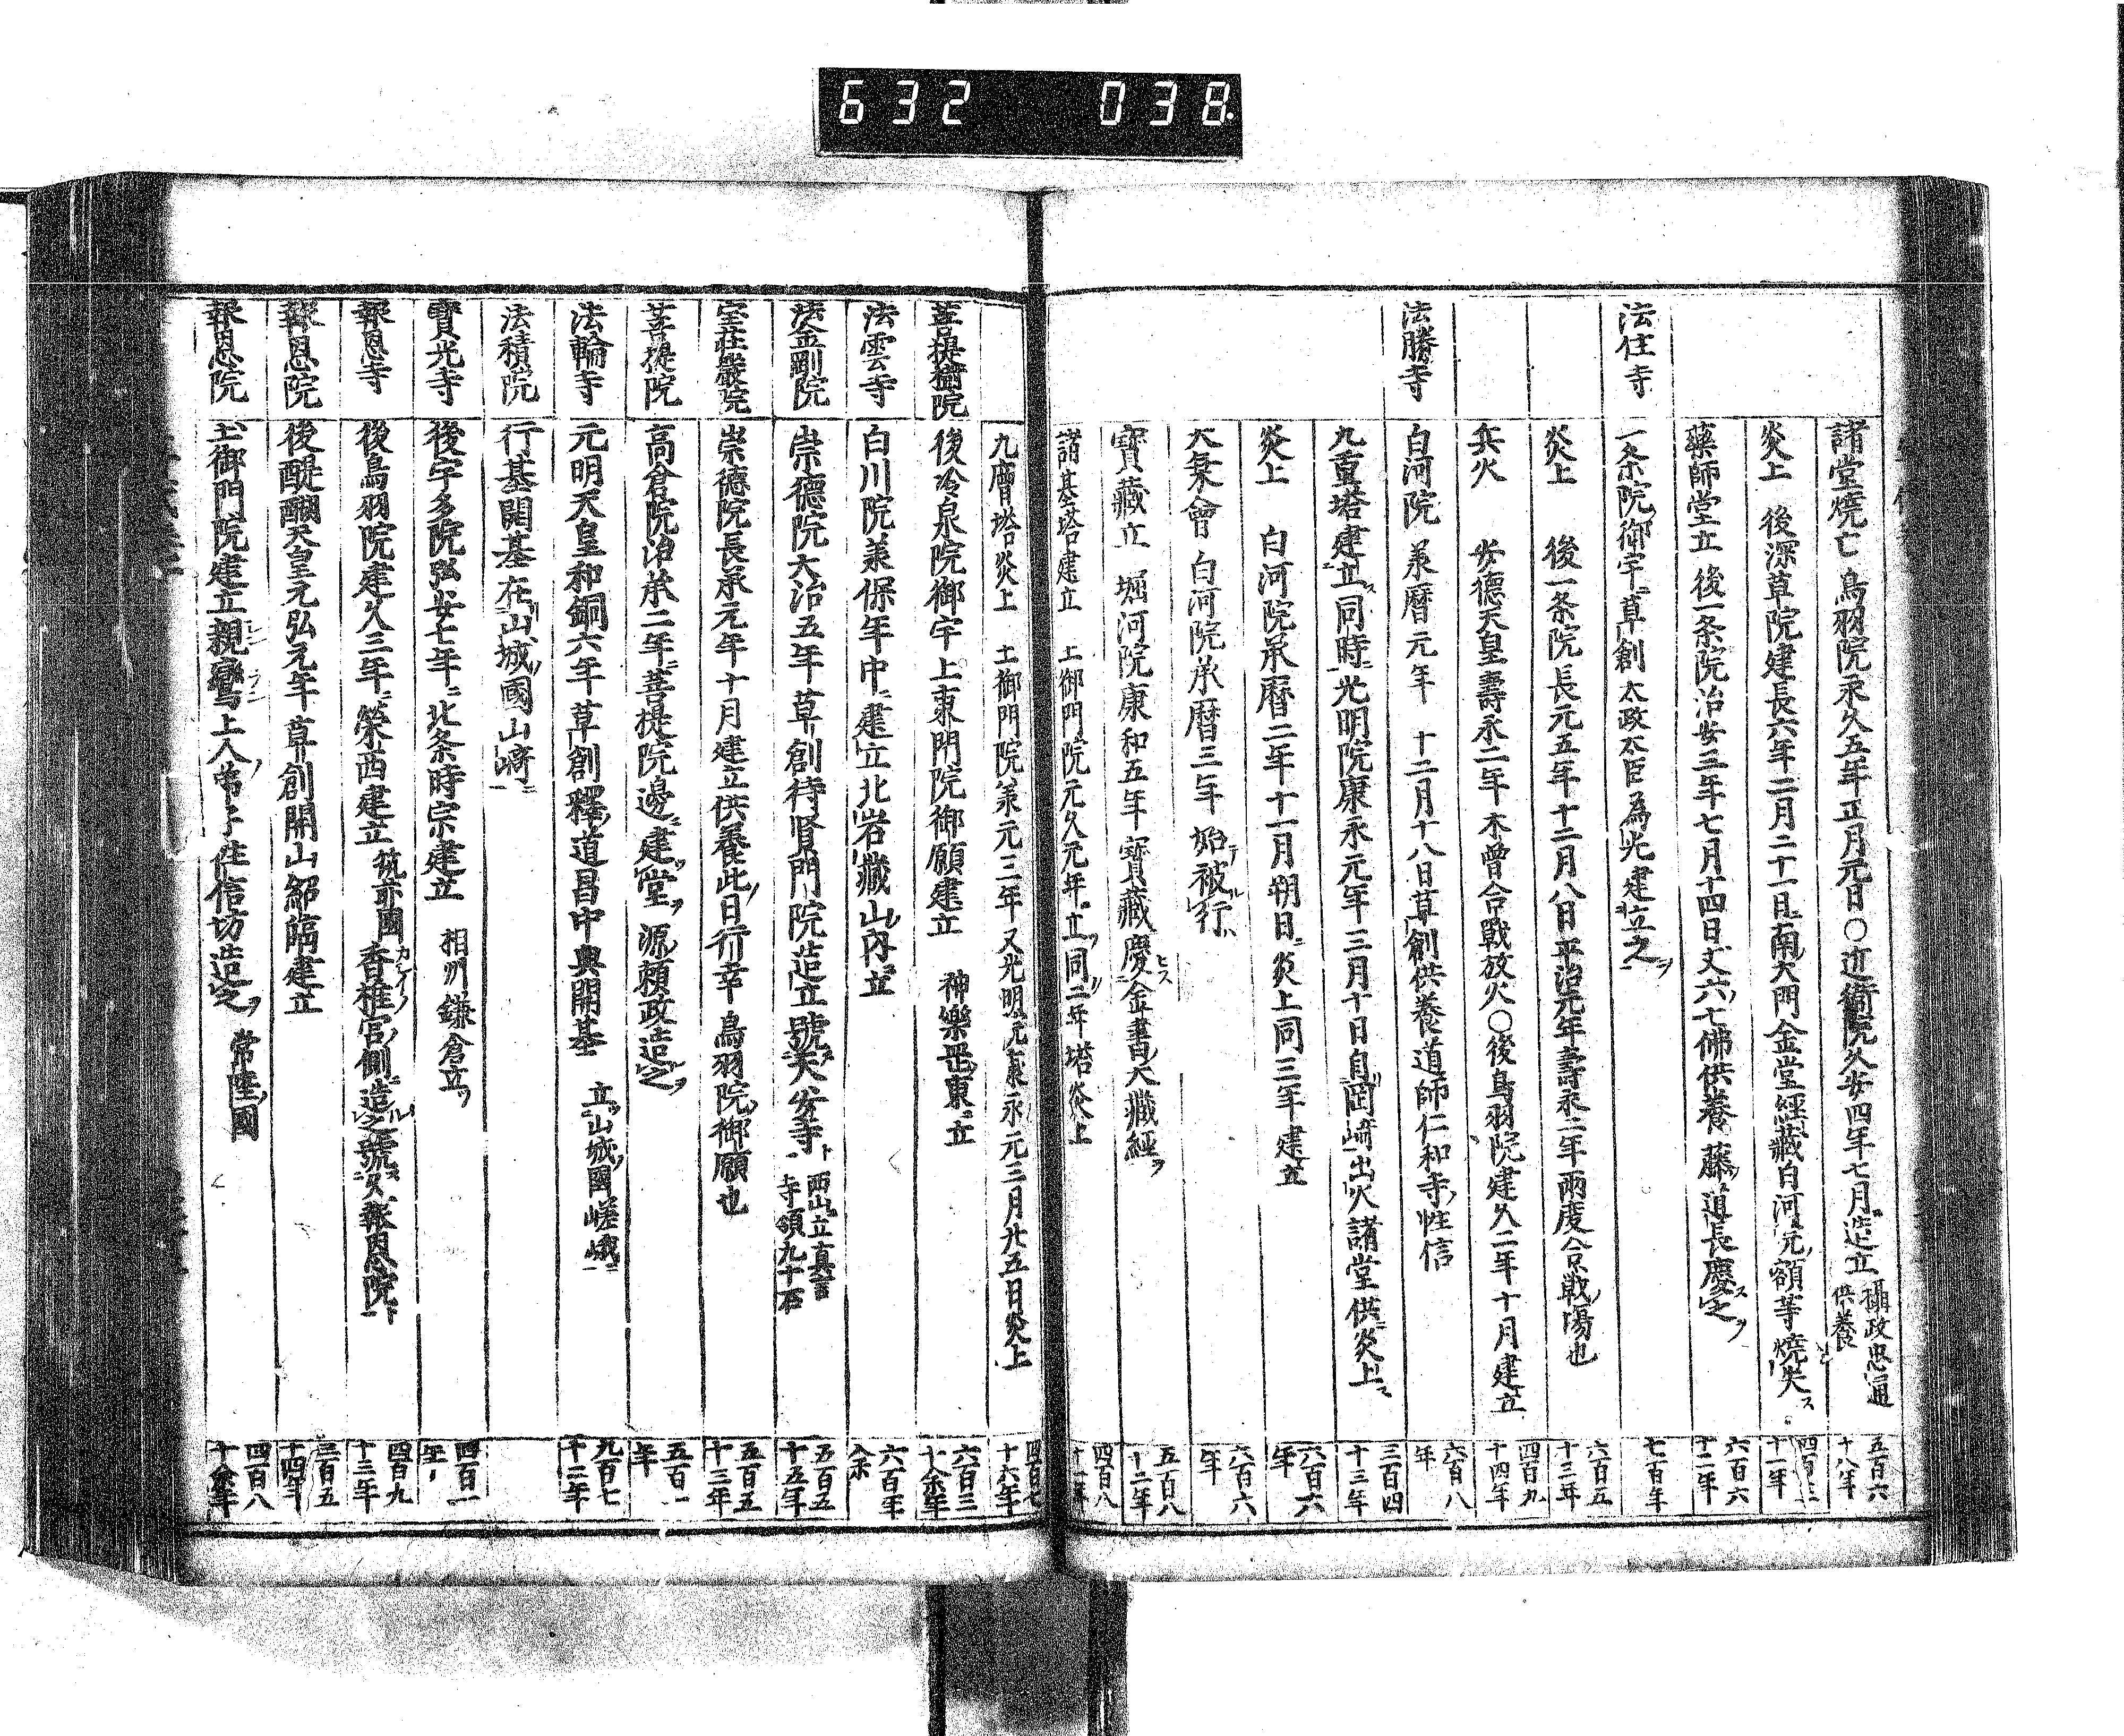 632 038
諸堂焼亡 鳥羽院永久五年正月元日○近衛院久安四年七月造立 攝政忠通供養 五百六十八年
炎上 後深草院建長六年二月二十一日南大門金堂經藏白河院額等焼失ス 十一年
藥師堂立 後一条院治安三年七月十四日丈六七佛供養藤道長慶之 六百六十二年
法住寺 一条院御宇草創太政大臣為光建立之 七百年
炎上 後一条院長元五年十二月八日平治元年壽永二年兩度合戦場也 六百五十三年
兵火 安德天皇壽永二年木曾合戰放火○後鳥羽院建久二年十月建立 四百九十四年
法勝寺 白河院 承暦元年 十二月十八日草創供養道師仁和寺性信 六百八年
九重塔建立同時光明院康永元年三月十日自岡崎出火諸堂供炎上 三百四十三年
炎上 白河院承暦二年十一月朔日炎上同三年建立 六百六年
大乗會 白河院承暦三年始被行 六百六年
寳藏立 堀河院康和五年寳藏慶金書大藏經 五百八十二年
諸基塔建立 土御門院元久元年立同二年塔炎上 四百八十一年
九層塔炎上 土御門院承元三年又光明院康永元三月廿五日炎上 四百七十六年
菩提樹院 後冷泉院御宇上東門院御願建立 神樂岳東立 六百三十余年
法雲寺 白川院承保年中建立北岩藏山内立 六百年余
法金剛院 崇德院大治五年草創待賢門院造立號天安寺 西山立真言寺領九十石 五百五十五年
宝莊嚴院 崇德院長承元年十月建立供養此日行幸鳥羽院御願也 五百五十三年
菩提院 高倉院治承二年菩提院邊建堂源頼政造之 五百一年
法輪寺 元明天皇和銅六年草創釋道昌中興開基 立山城國嵯峨 九百七十二年
法積院 行基開基在山城國山崎
寳光寺 後宇多院弘安七年北条時宗建立 相州鎌倉立 四百一年
報恩寺 後鳥羽院建久三年榮西建立 筑前國香椎宮側造之號又報恩院 四百九十三年
報恩院 後醍醐天皇元弘元年草創開山 建立 三百五十四年
報恩院 土御門院建立親鸞上人弟子性信坊造之 常陸國 四百八十余年